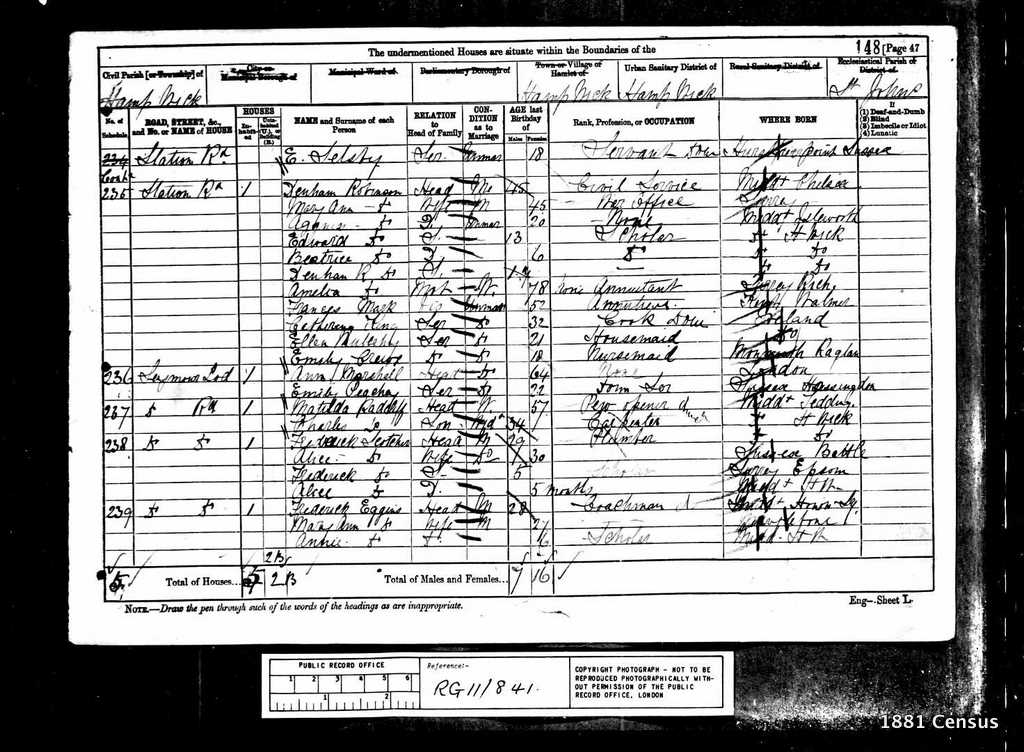 The undermentioned Houses are situate within the Boundaries of the
148 [Page 47
Civil Parish [or Township] of
City or Municipal Borough of
Municipal Ward of
Parliamentary Borough of
Town or Village or Hamlet of
Urban Sanitary District of
Rural Sanitary District of
Ecclesiastical Parish or District of
Hamp Wick Hamp Wick Hamp Wick St Johns
No. of Schedule
ROAD, STREET, &c., and No. or NAME of HOUSE
HOUSES
Inhabited
Uninhabited (U.), or Building (B.)
NAME and Surname of each Person
RELATION to Head of Family
CONDITION as to Marriage
AGE last Birthday of
Males Females
Rank, Profession, or OCCUPATION
WHERE BORN
If
(1) Deaf-and-Dumb
(2) Blind
(3) Imbecile or Idiot
(4) Lunatic
234 Station Rd E. Selsby Ser Unmar 18 Servant Dom Hurstpierpoint Sussex
Contd
235 Station Rd 1 Denham Robinson Head 45 Civil Service Midd+ Chelsea
Mary Ann do Wife M 45 War Office Surrey
Agnes do D. Unmar 20 None Midd+ Isleworth
Edward do S. 13 Scholar do H Wick
Beatrice do D. 6 do do do
Denham R do S. do do
Amelia do Moth W. 78 Annuitant Surrey
Frances Mark 52 Kent Walmer
King Ser do 32 Cook Dom England
Ellen Ser do 21 Housemaid do
Emily do do 18 Nursemaid Monmouth Raglan
236 Seymour Lod 1 Ann Marshall Head do 64 None London
Emily Ser do 22 Dom Ser Sussex
237 do Rd 1 Matilda Head W. 57 Pew opener Midd+ Tedding
Charles do Son 34 Carpenter do H Wick
238 do do 1 Frederick Head M 29 Plumber do do
Alice do Wife do 30 Sussex Battle
Frederick do S. 5 Scholar Surrey Epsom
Alice do D. 5 months Midd+ H W
239 do do 1 Frederick Eggins Head M 28 Coachman
Mary Ann do Wife M
Annie do 6 Scholar Midd H W
2 B
5 Total of Houses... 5 2 B Total of Males and Females... 7 16
NOTE.—Draw the pen through such of the words of the headings as are inappropriate.
Eng—Sheet L.
PUBLIC RECORD OFFICE
1 2 3 4 5 6
1 2
Reference:-
RG 11/841.
COPYRIGHT PHOTOGRAPH - NOT TO BE
REPRODUCED PHOTOGRAPHICALLY WITH-
OUT PERMISSION OF THE PUBLIC
RECORD OFFICE, LONDON
1881 Census